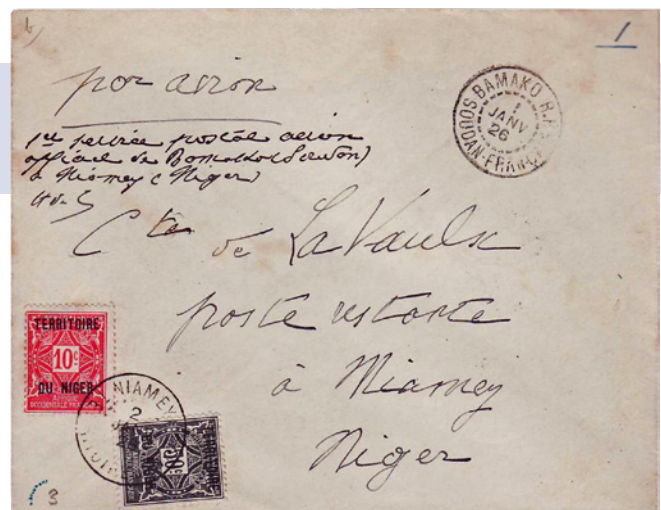 1
par avion
1er service postal avion
officiel de Bamako (Soudan)
à Niamey (Niger)
BAMAKO R.P.
1 JANV 26
SOUDAN-FRANÇAIS
Cte de La Vaulx
poste restante
à Niamey
Niger
TERRITOIRE
10c
DU NIGER
AFRIQUE
OCCIDENTALE FRANÇAISE
NIAMEY
2
3